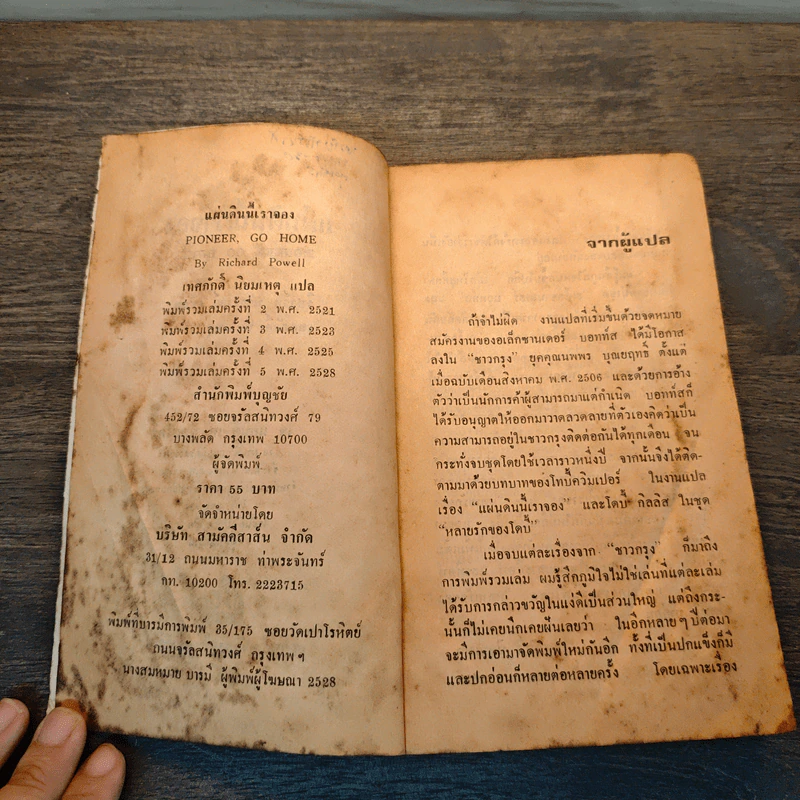 แผ่นดินนี้เราจอง
PIONEER, GO HOME
By Richard Powell
เทศภักดิ์ นิยมเหตุ แปล
พิมพ์รวมเล่มครั้งที่ 2 พ.ศ. 2521
พิมพ์รวมเล่มครั้งที่ 3 พ.ศ. 2523
พิมพ์รวมเล่มครั้งที่ 4 พ.ศ. 2525
พิมพ์รวมเล่มครั้งที่ 5 พ.ศ. 2528
สำนักพิมพ์บุญชัย
452/72 ซอยจรัลสนิทวงศ์ 79
บางพลัด กรุงเทพ 10700
ผู้จัดพิมพ์
ราคา 55 บาท
จัดจำหน่ายโดย
บริษัท สามัคคีสาส์น จำกัด
31/12 ถนนมหาราช ท่าพระจันทร์
กท. 10200 โทร. 2223715
พิมพ์ที่บารมีการพิมพ์ 35/175 ซอยวัดเปาโรหิตย์
ถนนจรัลสนิทวงศ์ กรุงเทพฯ
นางสมหมาย บารมี ผู้พิมพ์ผู้โฆษณา 2528
จากผู้แปล
ถ้าจำไม่ผิด งานแปลที่เริ่มขึ้นด้วยจดหมาย
สมัครงานของอเล็กซานเดอร์ บอทท์ส ได้มีโอกาส
ลงใน “ชาวกรุง” ยุคคุณนพพร บุณยฤทธิ์ ตั้งแต่
เมื่อฉบับเดือนสิงหาคม พ.ศ. 2506 และด้วยการอ้าง
ตัวว่าเป็นนักการค้าผู้สามารถมาแต่กำเนิด บอทท์สก็
ได้รับอนุญาตให้ออกมาวาดลวดลายที่ตัวเองคิดว่าเป็น
ความสามารถอยู่ในชาวกรุงติดต่อกันได้ทุกเดือน จน
กระทั่งจบชุดโดยใช้เวลาราวหนึ่งปี จากนั้นจึงได้ติด-
ตามมาด้วยบทบาทของโทบี้ควิมเปอร์ ในงานแปล
เรื่อง “แผ่นดินนี้เราจอง” และโดบี้ กิลลิส ในชุด
“หลายรักของโดบี้”
เมื่อจบแต่ละเรื่องจาก “ชาวกรุง” ก็มาถึง
การพิมพ์รวมเล่ม ผมรู้สึกภูมิใจไม่ใช่เล่นที่แต่ละเล่ม
ได้รับการกล่าวขวัญในแง่ดีเป็นส่วนใหญ่ แต่ถึงกระ-
นั้นก็ไม่เคยนึกเคยฝันเลยว่า ในอีกหลายๆปีต่อมา
จะมีการเอามาจัดพิมพ์ใหม่กันอีก ทั้งที่เป็นปกแข็งก็มี
และปกอ่อนก็หลายต่อหลายครั้ง โดยเฉพาะเรื่อง